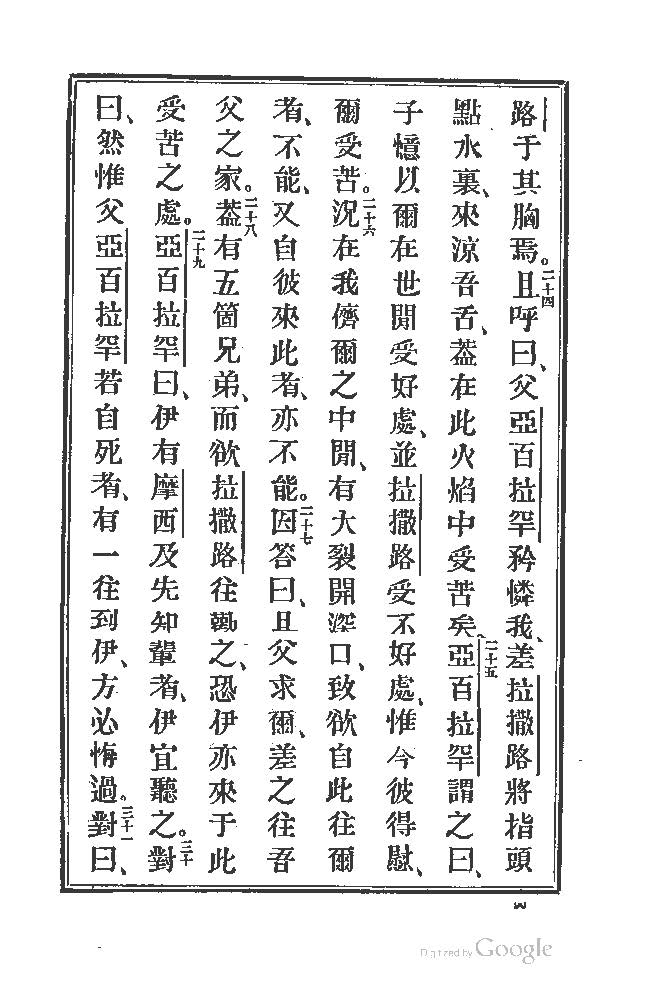 路于其胸焉。二十四且呼曰、父亞百拉罕矜憐我、差拉撒路將指頭
點水裏、來涼吾舌、葢在此火焰中受苦矣。二十五亞百拉罕謂之曰、
子憶以爾在世間受好處、並拉撒路受不好處、惟今彼得慰、
爾受苦。二十六況在我儕爾之中間、有大裂開深口、致欲自此往爾
者、不能、又自彼來此者、亦不能。二十七因答曰、且父求爾、差之往吾
父之家。二十八葢有五箇兄弟、而欲拉撒路往勸之、恐伊亦來于此
受苦之處。二十九亞百拉罕曰、伊有摩西及先知輩者、伊宜聽之。三十對
曰、然惟父亞百拉罕若自死者、有一往到伊、方必悔過。三十一對曰、
Digitized by Google